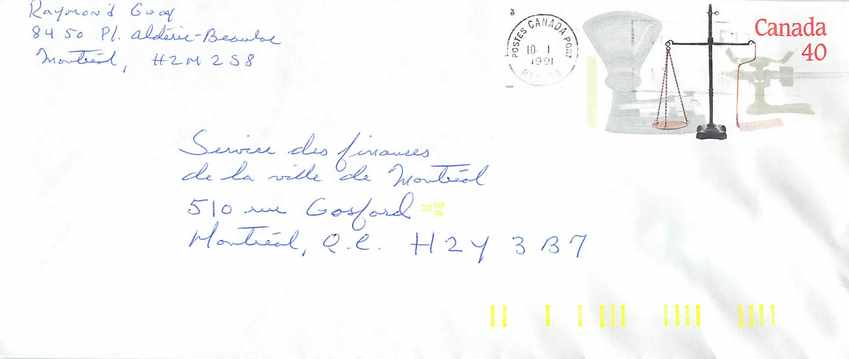 Raymond
8450 Pl. aldéric-Beaulac
Montréal, H2M 2S8
POSTES CANADA POST
10 1
1991
Canada
40
Service des finances
de la ville de Montréal
510 rue Gosford
Montréal, Q.C. H2Y 3B7